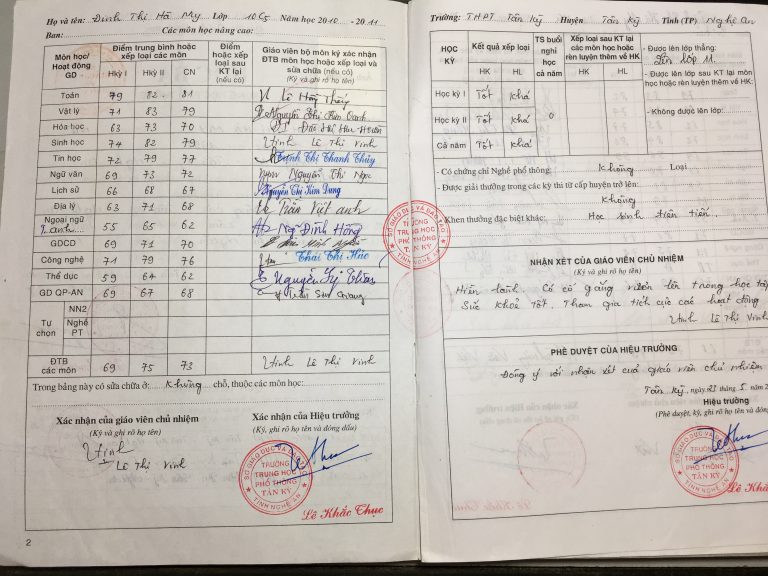 Họ và tên: Đinh Thị Hà My Lớp 10C5 Năm học 2010 - 2011
Ban: Các môn học nâng cao:
Môn học/ Hoạt động GD
Điểm trung bình hoặc xếp loại các môn
Hkỳ I Hkỳ II CN
Điểm hoặc xếp loại sau KT lại (nếu có)
Giáo viên bộ môn ký xác nhận ĐTB môn học hoặc xếp loại và sửa chữa (nếu có)
(Ký và ghi rõ họ tên)
Toán 79 82 81 Lê Hồng Thúy
Vật lý 71 83 79 Nguyễn Thị Kim Oanh
Hóa học 63 73 70
Sinh học 74 82 79 Vinh Lê Thị Vinh
Tin học 72 79 77 Trịnh Thị Thanh Thủy
Ngữ văn 69 73 72 Nguyễn Thị Ngọc
Lịch sử 66 68 67 Nguyễn Thị Kim Dung
Địa lý 63 71 68 Trần Việt Anh
Ngoại ngữ T.anh 55 65 62 Ngô Đình Hồng
GDCD 69 71 70
Công nghệ 71 79 76 Thái Thị Húc
Thể dục 59 64 62 Nguyễn Sỹ
GD QP-AN 69 67 68
Tự chọn
NN2
Nghề PT
ĐTB các môn 69 75 73 Vinh Lê Thị Vinh
Trong bảng này có sửa chữa ở: Không chỗ, thuộc các môn học:
Xác nhận của giáo viên chủ nhiệm
(Ký và ghi rõ họ tên)
Vinh
Lê Thị Vinh
Xác nhận của Hiệu trưởng
(Ký, ghi rõ họ tên và đóng dấu)
SỞ GIÁO DỤC VÀ ĐÀO TẠO
TRƯỜNG
TRUNG HỌC
PHỔ THÔNG
TÂN KỲ
TỈNH NGHỆ AN
Lê Khắc Thục
2
Trường: THPT Tân Kỳ Huyện Tân Kỳ Tỉnh (TP) Nghệ An
HỌC KỲ
Kết quả xếp loại
HK HL
TS buổi nghỉ học cả năm
Xếp loại sau KT lại các môn học hoặc rèn luyện thêm về HK
HK HL
Học kỳ I Tốt Khá
Học kỳ II Tốt Khá 0
Cả năm Tốt Khá
- Được lên lớp thẳng:
Lên lớp 11.
- Được lên lớp sau KT lại môn học hoặc rèn luyện thêm về HK:
- Không được lên lớp:
- Có chứng chỉ Nghề phổ thông: Không Loại
- Được giải thưởng trong các kỳ thi từ cấp huyện trở lên:
Không
Khen thưởng đặc biệt khác: Học sinh tiên tiến.
SỞ GIÁO DỤC VÀ ĐÀO TẠO
TRƯỜNG
TRUNG HỌC
PHỔ THÔNG
TÂN KỲ
TỈNH NGHỆ AN
NHẬN XÉT CỦA GIÁO VIÊN CHỦ NHIỆM
(Ký và ghi rõ họ tên)
Hiền lành. Có cố gắng vươn lên trong học tập
Sức khoẻ Tốt. Tham gia tích cực các hoạt động
Vinh Lê Thị Vinh
PHÊ DUYỆT CỦA HIỆU TRƯỞNG
Đồng ý với nhận xét của giáo viên chủ nhiệm
Tân Kỳ, ngày 21 tháng 5 năm 2
Hiệu trưởng
(Phê duyệt, ký, ghi rõ họ tên và đóng
SỞ GIÁO DỤC VÀ ĐÀO TẠO
TRƯỜNG
TRUNG HỌC
PHỔ THÔNG
TÂN KỲ
TỈNH NGHỆ AN
Lê Khắc Thục